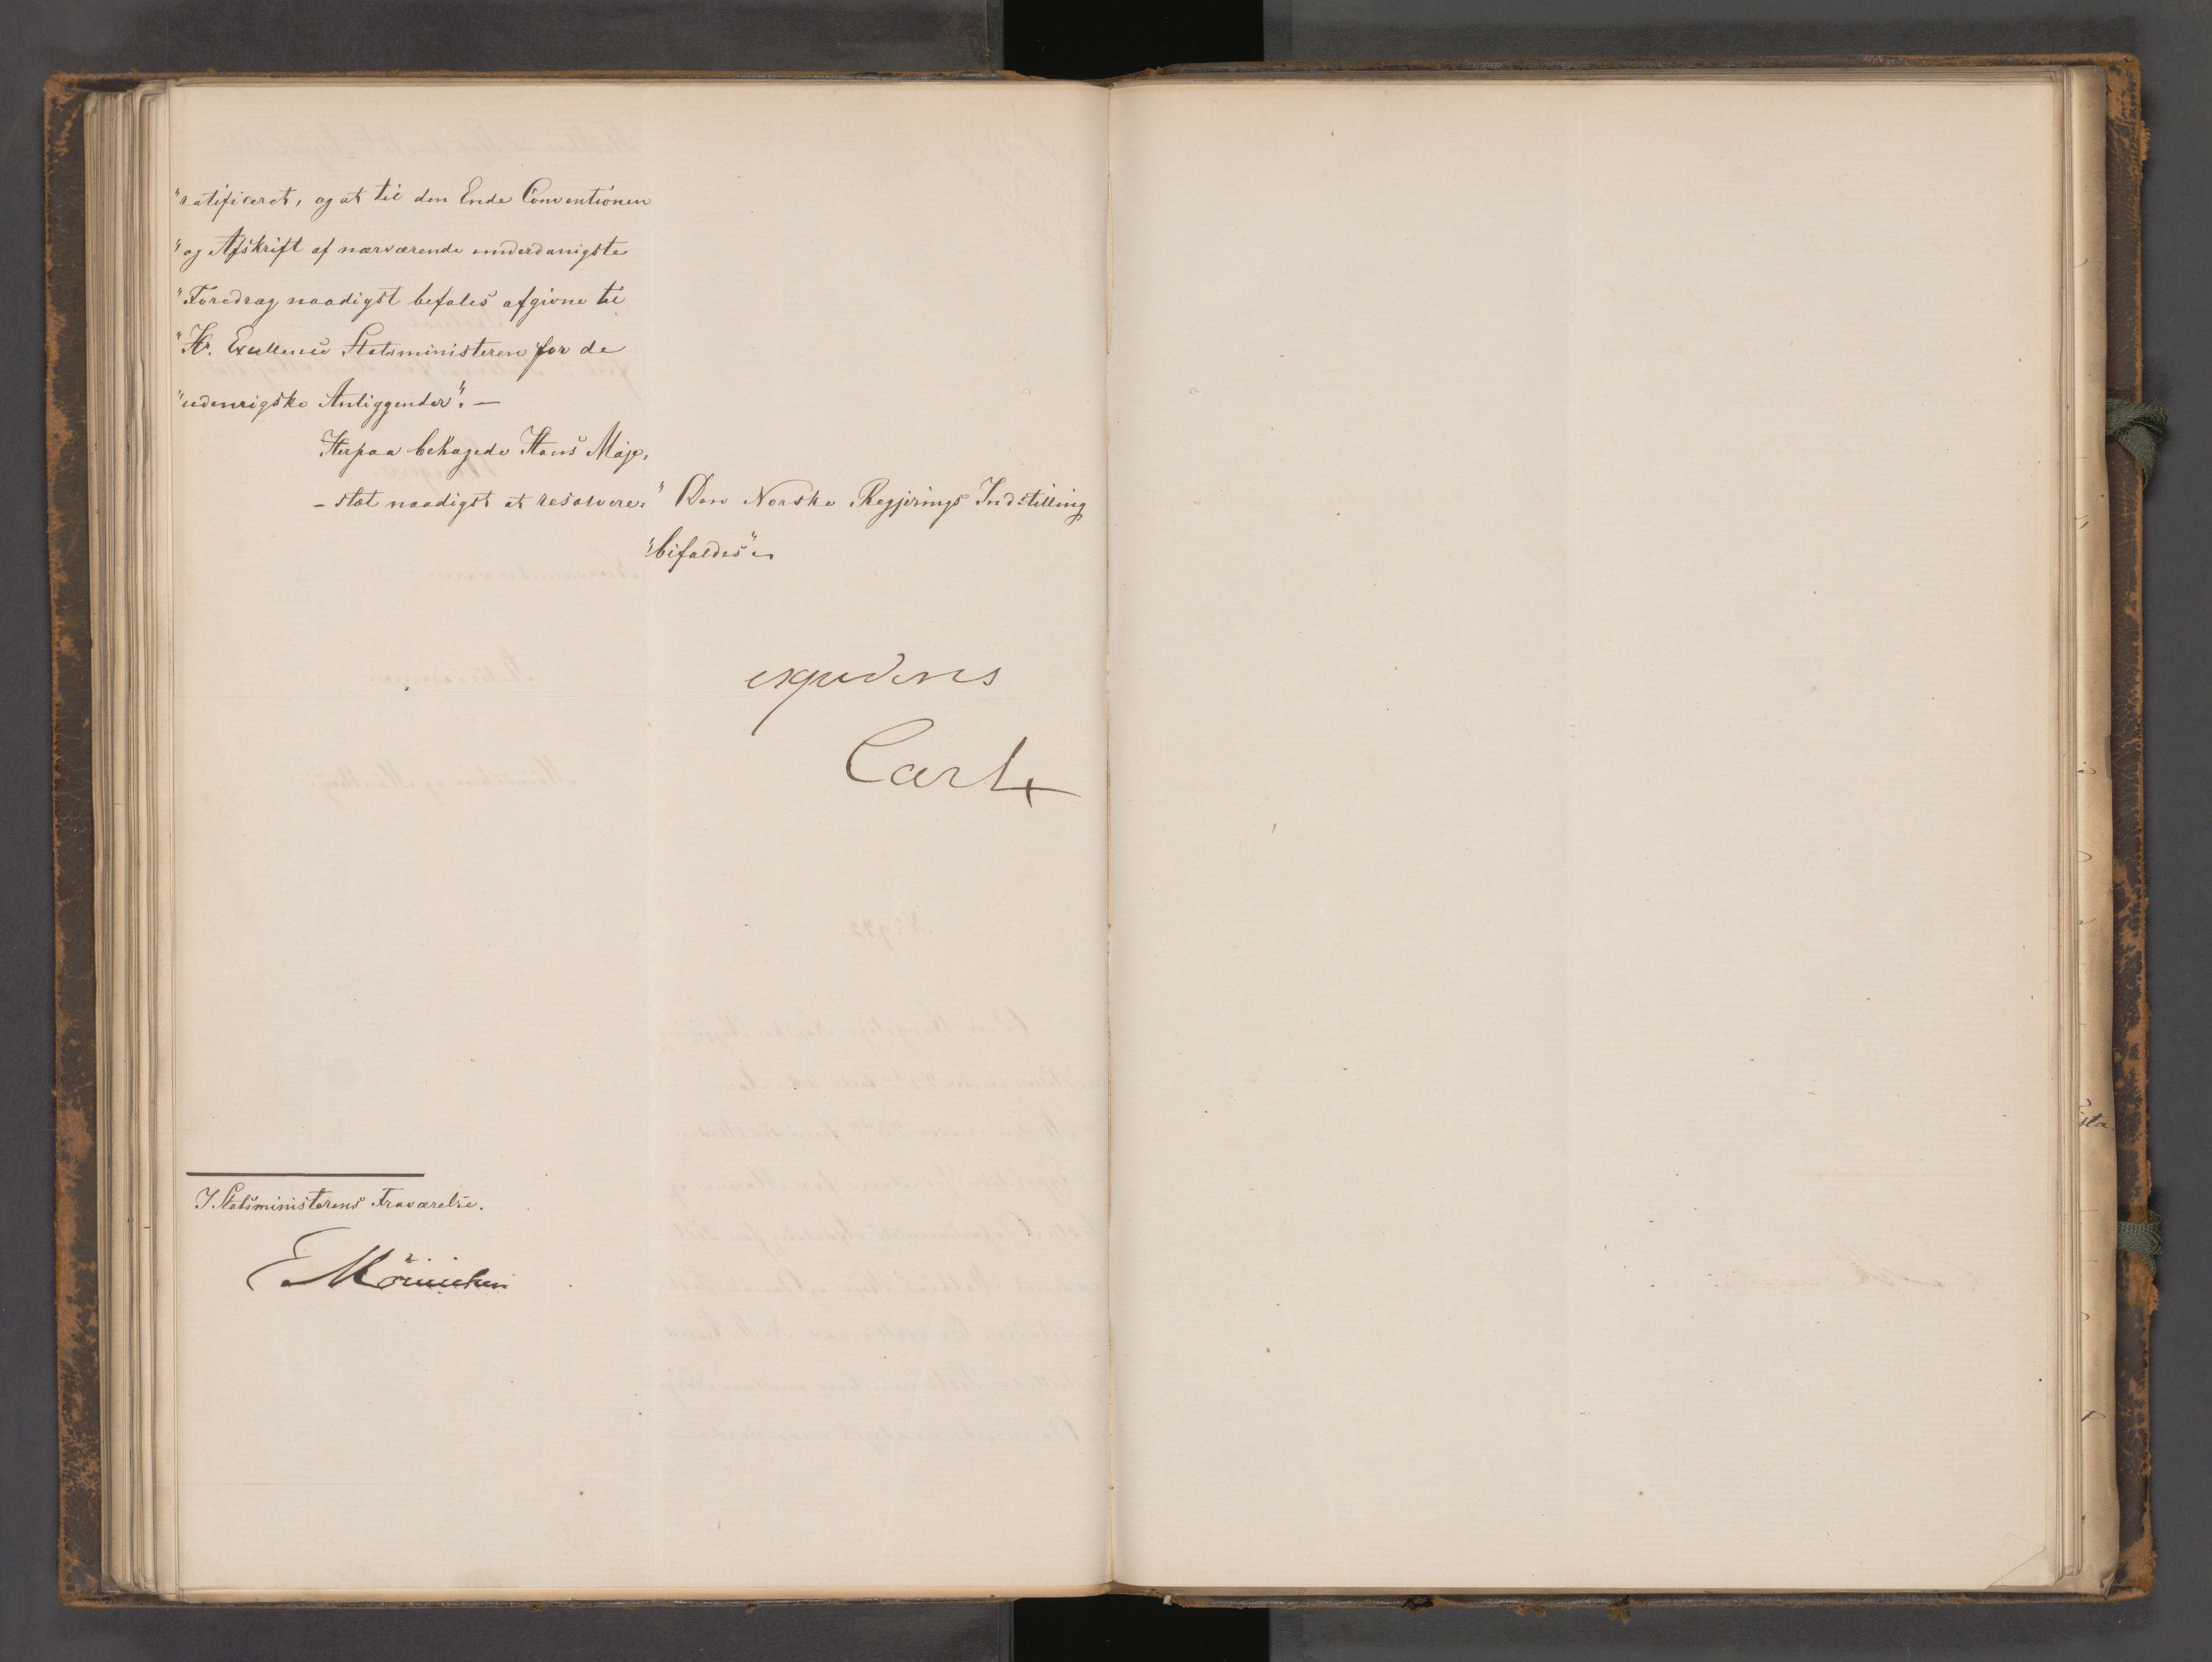 "ratificeret, og at til den Ende Conventionen
"og Afskrift af nærværende underdanigste
"Foredrag naadigst befales afgivne til
"Hr. Excellence Statsministeren for de
"udenrigske Anliggender". —
Herpaa behagede Hans Maje-
- stæt naadigst at resolvere: "Den Norske Regjerings Indstilling
"bifaldes".
expederes
Carl
I Statsministerens Fraværelse.